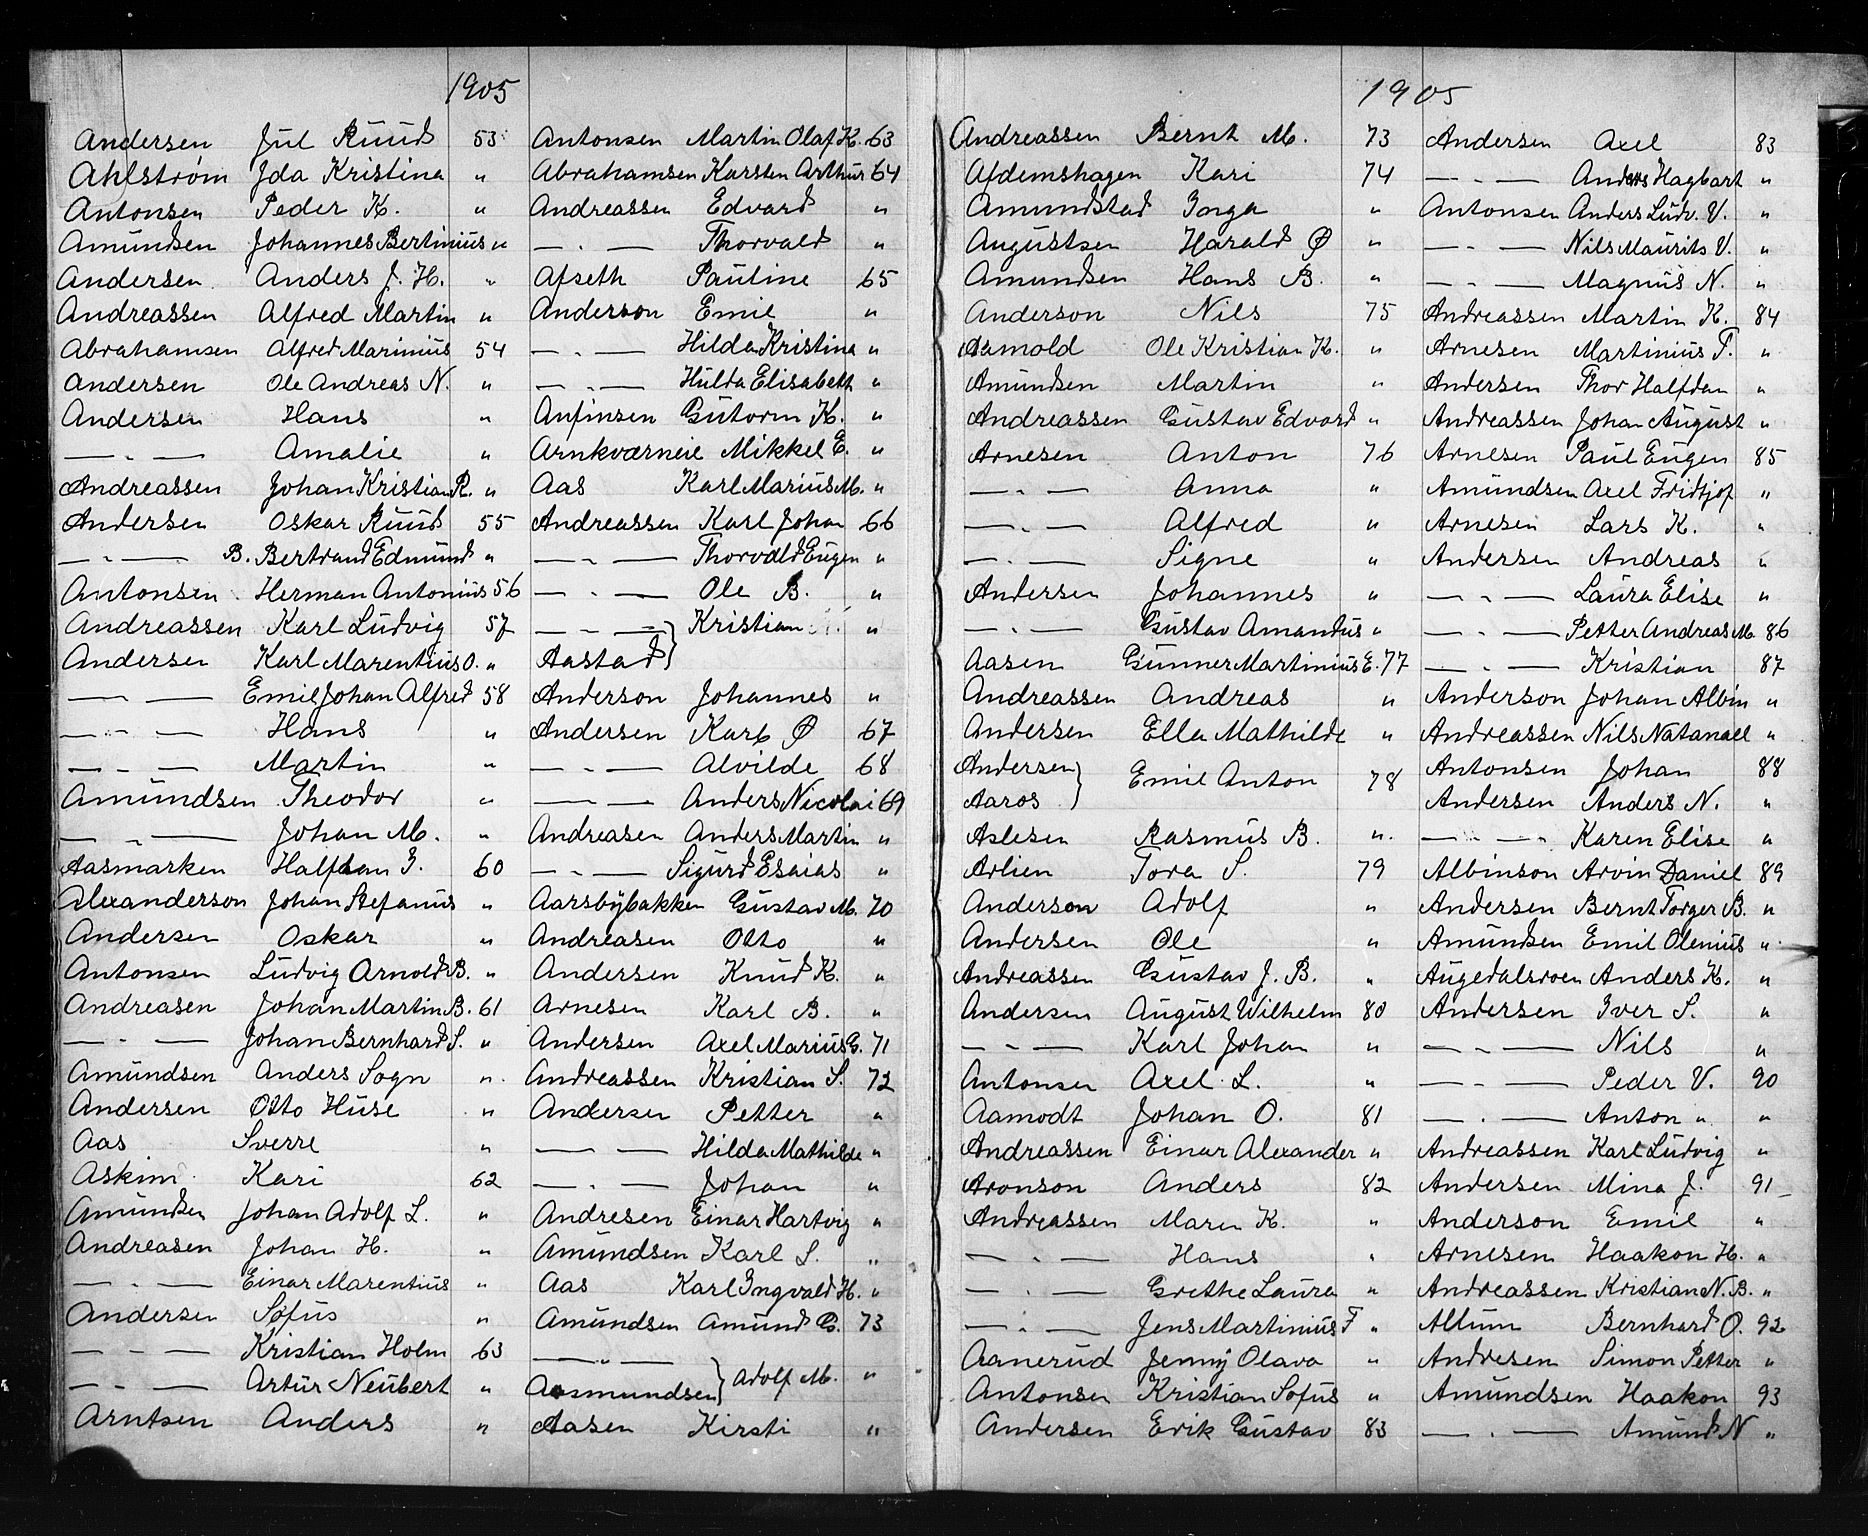 1905
Andersen Jul Ruud 53
Ahlström Ida Kristina "
Antonsen Peder K. "
Amundsen Johannes Bertinius "
Andersen Anders J. H. "
Andreassen Alfred Martin "
Abrahamsen Alfred Marinius 54
Andersen Ole Andreas N. "
Andersen Hans "
— " — Amalie "
Andreassen Johan Kristian R. "
Andersen Oskar Ruud 55
— " — B. Bertrand Edmund "
Antonsen Herman Antonius 56
Andreassen Karl Ludvig 57
Andersen Karl Marentius O. "
— " — Emil Johan Alfred 58
— " — Hans "
— " — Martin "
Amundsen Theodor "
— " — Johan M. "
Aasmarken Halfdan G. 60
Alexanderson Johan Stefanus "
Andersen Oskar "
Antonsen Ludvig Arnold B. "
Andreasen Johan Martin B. 61
— " — Johan Bernhard S. "
Amundsen Anders Sogn "
Andersen Otto Huse "
Aas Sverre "
Askim Kari 62
Amundsen Johan Adolf L. "
Andreasen Johan H. "
— " — Einar Marentius "
Andersen Sofus "
— " — Kristian Holm 63
— " — Artur Neubert "
Arntsen Anders "
Antonsen Martin Olaf K. 63
Abrahamsen Karsten Arthur 64
Andreassen Edvard "
— " — Thorvald "
Afseth Pauline 65
Anderson Emil "
— " — Hilda Kristina "
— " — Hulda Elisabeth "
Anfinsen Gutorm K. "
Arnkværneie Mikkel E. "
Aas Karl Marius M. "
Andreassen Karl Johan 66
— " — Thorvald Eugen "
— " — Ole B. "
— " — } Kristian "
Aastad }
Anderson Johannes "
Andersen Karl Ø 67
— " — Alvilde 68
— " — Anders Nicolai 69
Andreasen Anders Martin "
— " — Sigurd Esaias "
Aarsbybakken Gustav M. 70
Andreasen Otto "
Andersen Knud K. "
Arnesen Karl B. "
Andersen Axel Marius G. 71
Andreassen Kristian S. 72
Andersen Petter "
— " — Hilda Mathilde "
— " — Johan "
Andresen Einar Hartvig "
Amundsen Karl S. "
Aas Karl Ingvald H. "
Amundsen Amund G. 73
— " — } Adolf M. "
Aasmundsen }
Aasen Kirsti "
1905
Andreassen Bernt M. 73
Afdemshagen Kari 74
Amundstad Inga "
Augustsen Harald Ø "
Amundsen Hans B. "
Anderson Nils 75
Aamold Ole Kristian K. "
Amundsen Martin "
Andreassen Gustav Edvard "
Arnesen Anton 76
— " — Anna "
— " — Alfred "
— " — Signe "
Andersen Johannes "
— " — Gustav Amandus "
Aasen Gunner Martinius E. 77
Andreassen Andreas "
Andersen Ella Mathilde "
Andersen } Emil Anton 78
Aaros }
Aslesen Rasmus B. "
Arlien Tora S. 79
Anderson Adolf "
Andersen Ole "
Andreassen Gustav J. B. "
Andersen August Wilhelm 80
— " — Karl Johan "
Antonsen Axel L. "
Aamodt Johan O. 81
Andreassen Einar Alexander "
Aronson Anders 82
Andreassen Maren K. "
— " — Hans "
— " — Grethe Laura "
— " — Jens Martinius F "
Aanerud Jenny Olava "
Antonsen Kristian Sofus "
Andersen Erik Gustav 83
Andersen Axel 83
— " — Anders Hagbart "
Antonsen Anders Ludv. V. "
— " — Nils Maurits V. "
— " — Magnus N. "
Andreassen Martin K. 84
Arnesen Martinius T. "
Andersen Thor Halfdan "
Andreassen Johan August "
Arnesen Paul Eugen 85
Amundsen Axel Fridtjof "
Arnesen Lars K. "
Andersen Andreas "
— " — Laura Elise "
— " — Petter Andreas M. 86
— " — Kristian 87
Anderson Johan Albin "
Andreassen Nils Natanael "
Antonsen Johan 88
Andersen Anders N. "
— " — Karen Elise "
Albinson Arvin Daniel 89
Andersen Bernt Torger B. "
Amundsen Emil Olenius "
Augedalsroen Anders K. "
Andersen Iver S. "
— " — Nils "
— " — Peder V. 90
— " — Anton " "
Andreassen Karl Ludvig "
Andersen Mina J. 91
Anderson Emil "
Arnesen Haakon H. "
Andreassen Kristian N. B. "
Allum Bernhard O. 92
Andresen Simon Petter "
Amundsen Haakon 93
— " — Amund N "